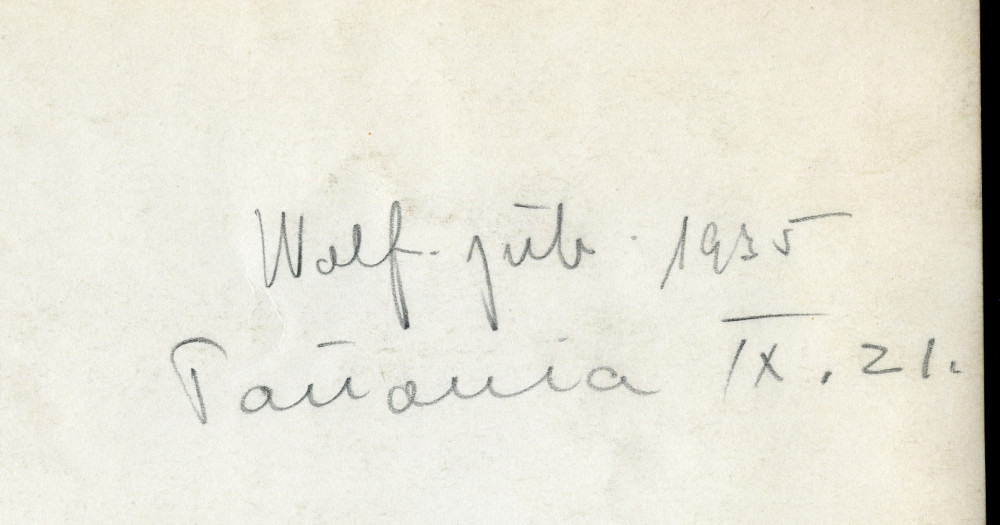 Wolf-jub. 1935
Pan̄onia IX. 21.